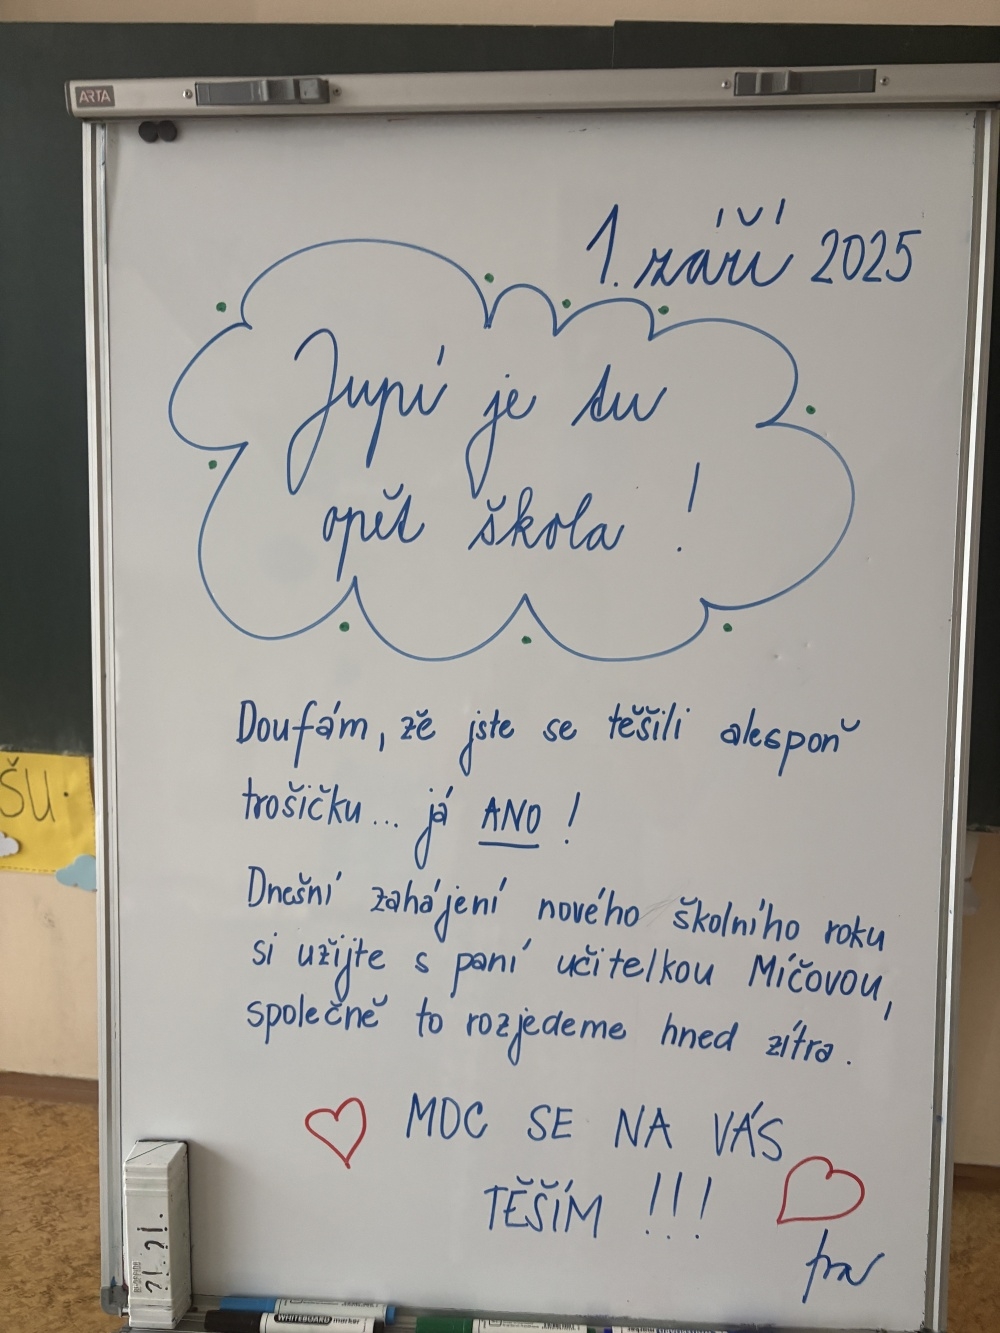 ARTA
1. září 2025
Jupí je tu
opět škola !
Doufám, že jste se těšili alespoň
trošičku... já ANO !
Dnešní zahájení nového školního roku
si užijte s paní učitelkou Míčovou,
společně to rozjedeme hned zítra.
MOC SE NA VÁS
TĚŠÍM !!!
ŠU.
?!.?!.
WHITEBOARD marker